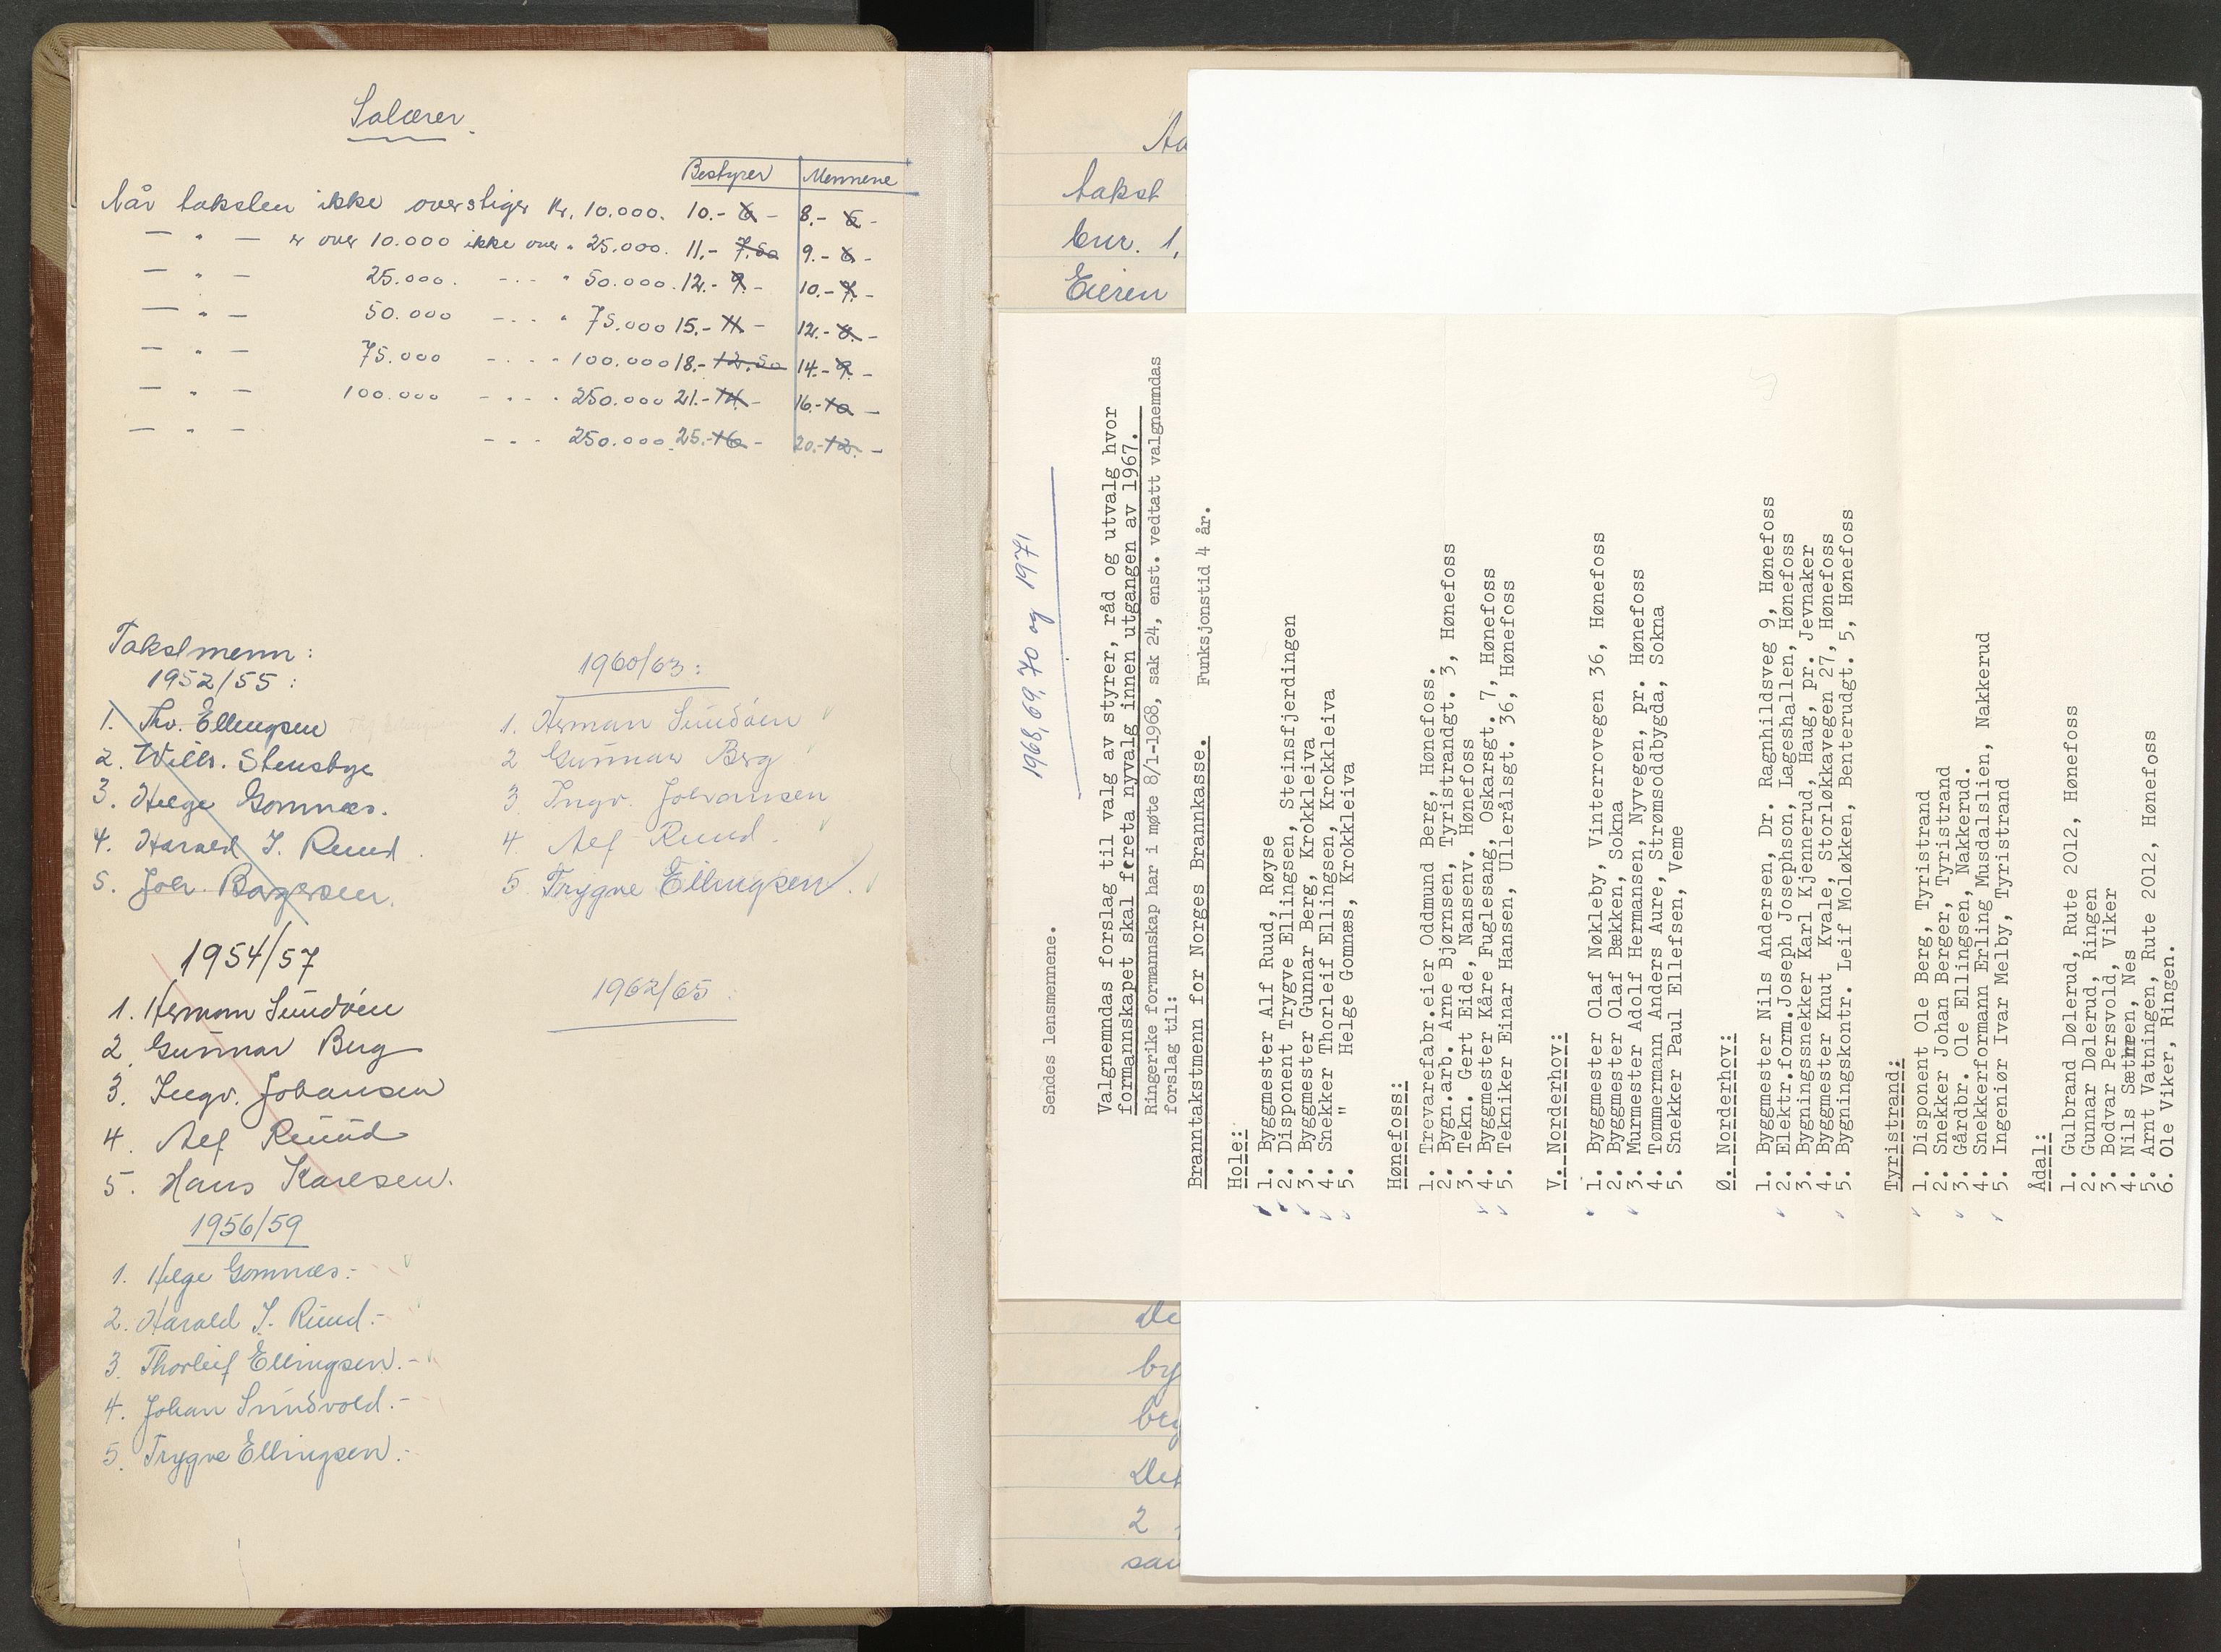 Salærer.
Bestyrer Mennene
Når taksten ikke overstiger kr. 10.000. 10.- 6.- 8.- 6.-
— " — er over 10.000 ikke over " 25.000. 11.- 7.50 9.- 6.-
— " — 25.000. - - - " 50.000. 12.- 9.- 10.- 7.-
— " — 50.000 - - - " 75.000 15.- 11.- 12.- 8.-
— " — 75.000 - - - " 100.000 18.- 12.50 14.- 9.-
— " — 100.000 - - - " 250.000 21.- 14.- 16.- 10.-
— " — - - - 250.000. 25.- 16.- 20.- 12.-
Takstmenn:
1952/55:
1. Thv. Ellingsen
2. Wilh. Stensbye
3. Helge Gomnæs.
4. Harald J. Ruud.
5. Joh. Borgersen.
1954/57
1. Herman Sundøen
2. Gunnar Berg
3. Ingv. Johansen
4. Alf Ruud
5. Hans Karlsen.
1956/59
1. Helge Gomnæs.-
2. Harald J. Ruud.-
3. Thorleif Ellingsen.-
4. Johan Sundvold.-
5. Trygve Ellingsen.-
1960/63:
1. Herman Sundøen
2 Gunnar Berg
3. Ingv. Johansen
4. Alf Ruud.
5 Trygve Ellingsen.
1962/65:
takst
bnr. 1,
Eieren
De
by
Det
2
1968, 69, 70 og 1971
Sendes lensmennene.
Valgnemndas forslag til valg av styrer, råd og utvalg hvor
formannskapet skal føreta nyvalg innen utgangen av 1967.
Ringerike formannskap har i møte 8/1-1968, sak 24, enst. vedtatt valgnemndas
forslag til:
Branntakstmenn for Norges Brannkasse. Funksjonstid 4 år.
Hole:
1. Byggmester Alf Ruud, Røyse
2. Disponent Trygve Ellingsen, Steinsfjerdingen
3. Byggmester Gunnar Berg, Krokkleiva
4. Snekker Thorleif Ellingsen, Krokkleiva
5. " Helge Gomnæs, Krokkleiva
Hønefoss:
1. Trevarefabr.eier Oddmund Berg, Hønefoss.
2. Bygn.arb. Arne Bjørnsen, Tyristrandgt. 3, Hønefoss
3. Tekn. Gert Eide, Nansenv. Hønefoss
4. Byggmester Kåre Fuglesang, Oskarsgt. 7, Hønefoss
5. Tekniker Einar Hansen, Ullerålsgt. 36, Hønefoss
V. Norderhov:
1. Byggmester Olaf Nøkleby, Vinterrovegen 36, Hønefoss
2. Byggmester Olaf Bækken, Sokna
3. Murmester Adolf Hermansen, Nyvegen, pr. Hønefoss
4. Tømmermann Anders Aure, Strømsoddbygda, Sokna
5. Snekker Paul Ellefsen, Veme
Ø. Norderhov:
1. Byggmester Nils Andersen, Dr. Ragnhildsveg 9, Hønefoss
2. Elektr.form.Joseph Josephson, Lageshallen, Hønefoss
3. Bygningssnekker Karl Kjennerud, Haug, pr. Jevnaker
4. Byggmester Knut Kvale, Storløkkavegen 27, Hønefoss
5. Bygningskontr. Leif Moløkken, Benterudgt. 5, Hønefoss
Tyristrand:
1. Disponent Ole Berg, Tyristrand
2. Snekker Johan Berger, Tyristrand
3. Gårdbr. Ole Ellingsen, Nakkerud.
4. Snekkerformann Erling Musdalslien, Nakkerud
5. Ingeniør Ivar Melby, Tyristrand
Ådal:
1. Gulbrand Dølerud, Rute 2012, Hønefoss
2. Gunnar Dølerud, Ringen
3. Bodvar Persvold, Viker
4. Nils Sæthren, Nes
5. Arnt Vatningen, Rute 2012, Hønefoss
6. Ole Viker, Ringen.